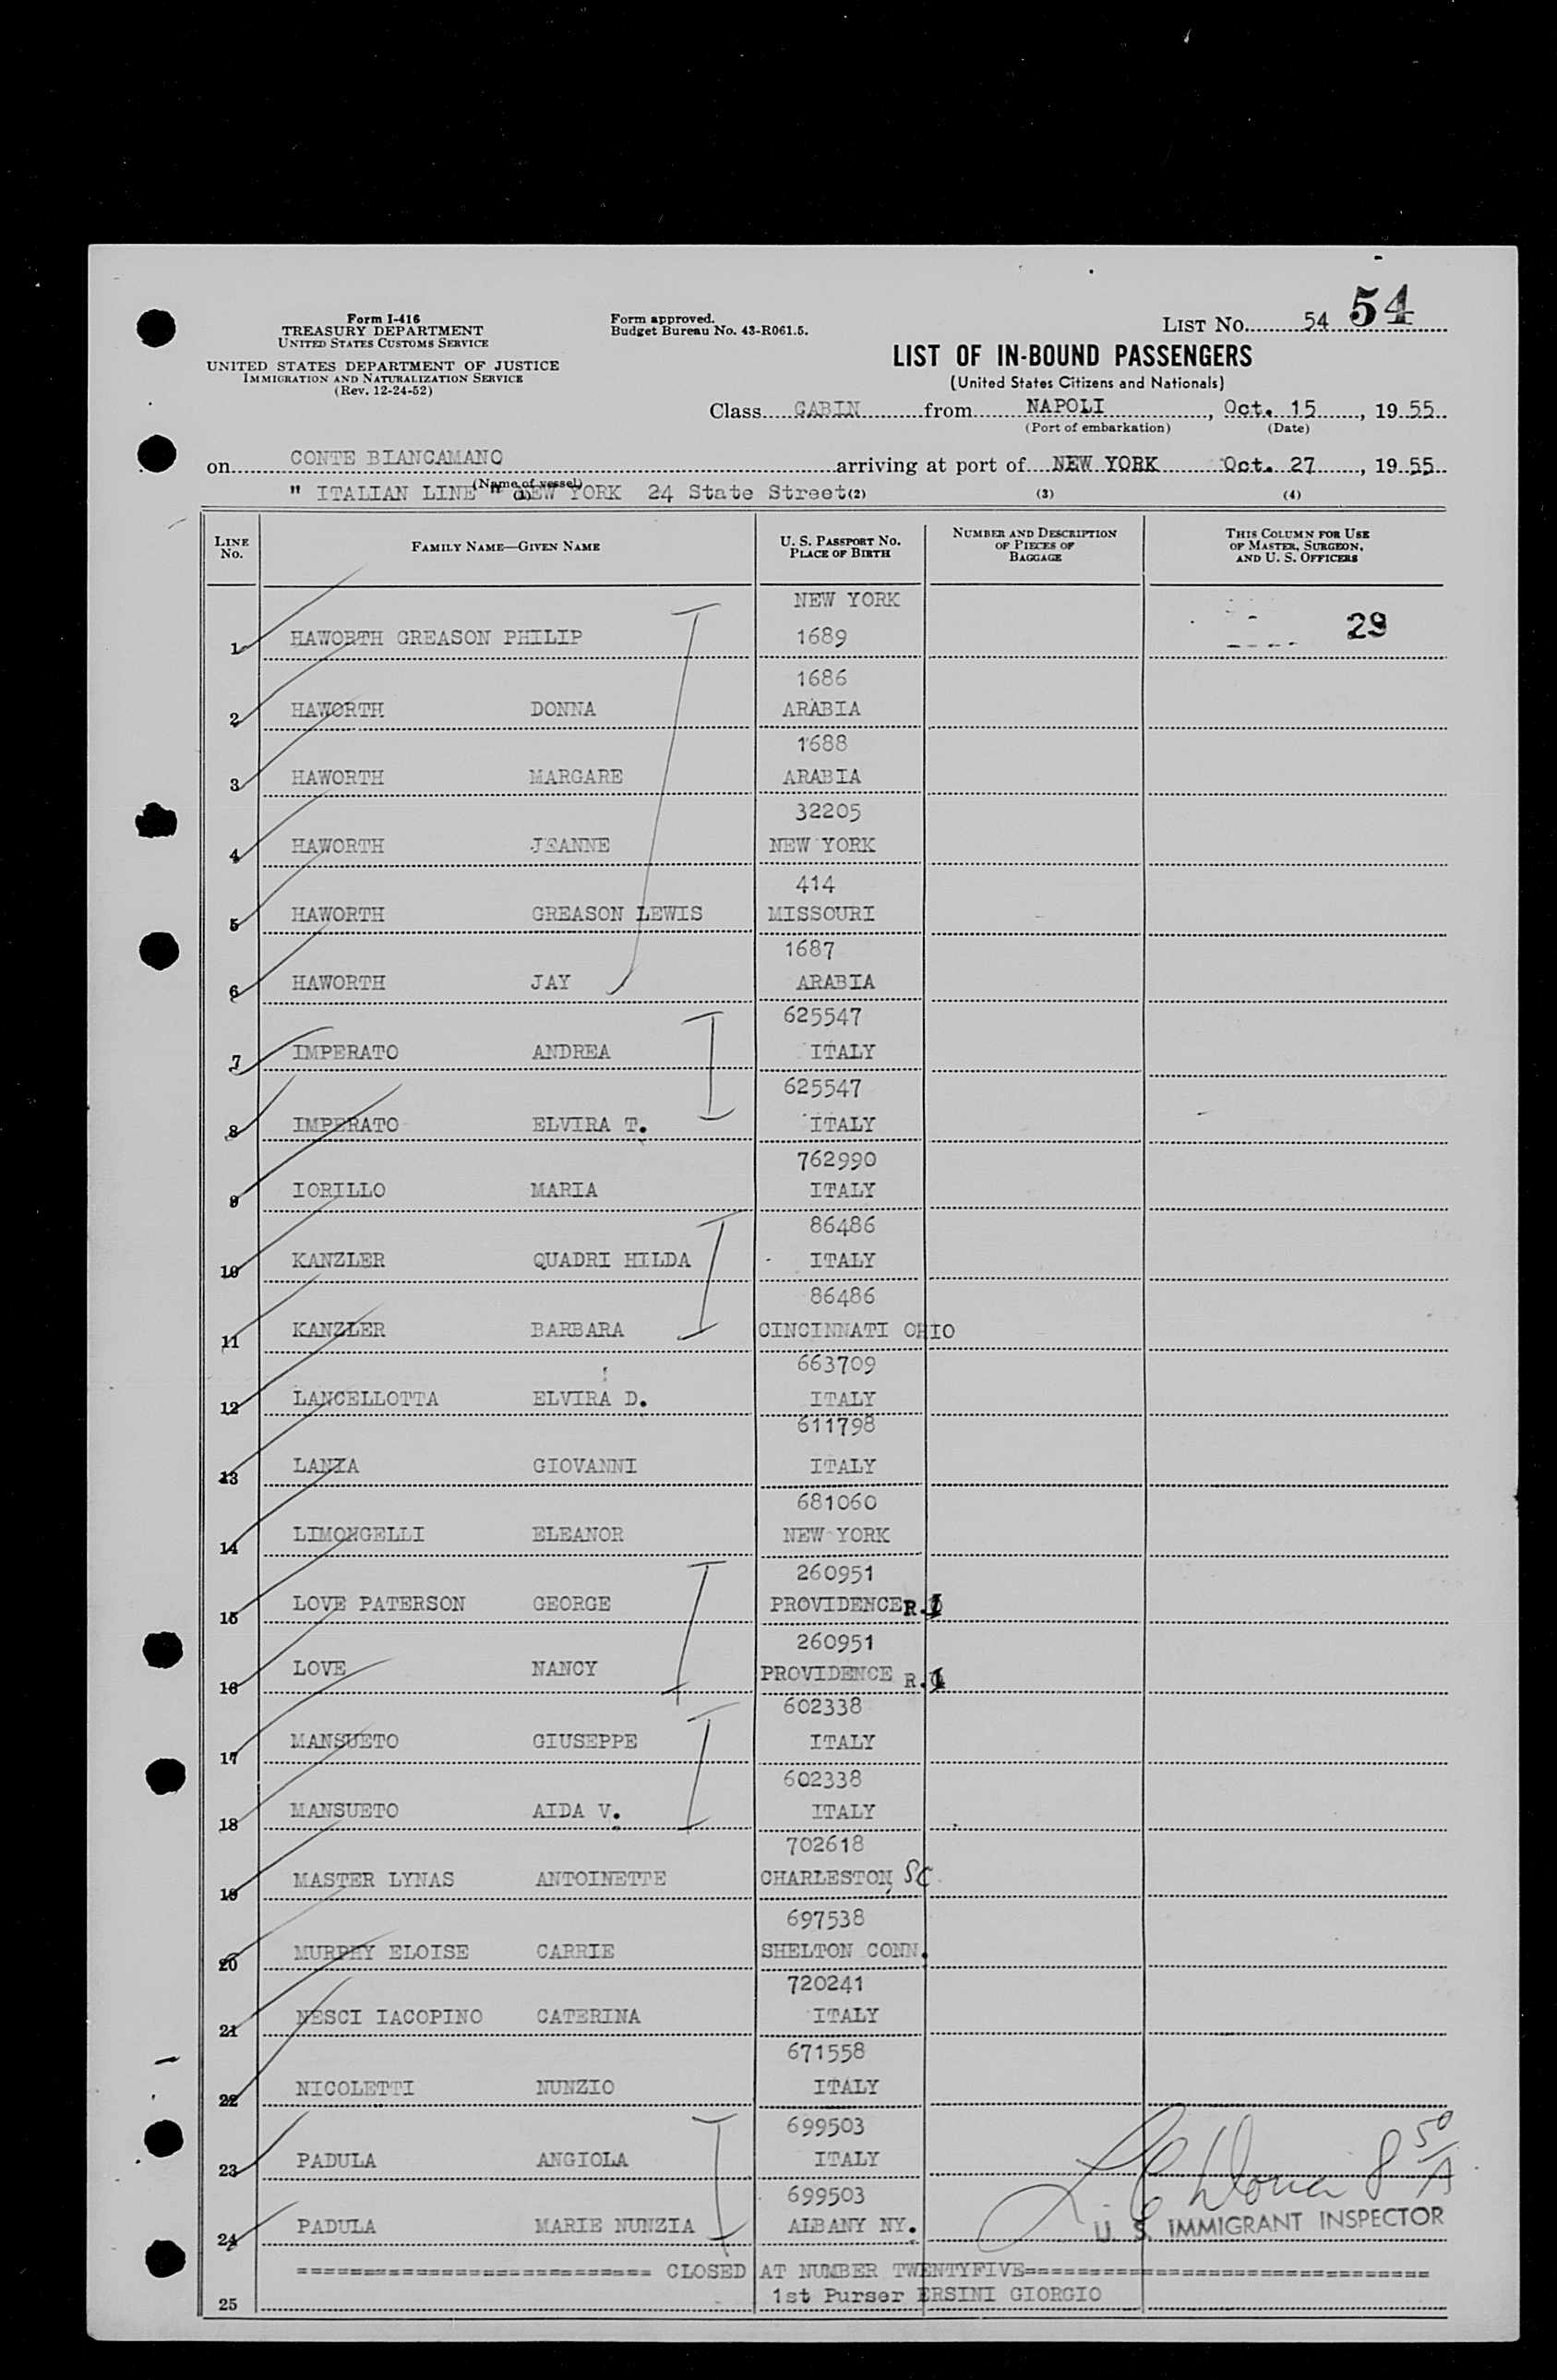 Form I-416
TREASURY DEPARTMENT
UNITED STATES CUSTOMS SERVICE
UNITED STATES DEPARTMENT OF JUSTICE
IMMIGRATION AND NATURALIZATION SERVICE
(Rev. 12-24-52)
Form approved.
Budget Bureau No. 43-R061.5.
LIST No. 54 54
LIST OF IN-BOUND PASSENGERS
(United States Citizens and Nationals)
Class CABIN from NAPOLI, Oct. 15, 19 55
(Port of embarkation) (Date)
on CONTE BIANCAMANO arriving at port of NEW YORK Oct. 27, 19 55
(Name of vessel)
" ITALIAN LINE " NEW YORK 24 State Street
(1) (2) (3) (4)
LINE No. FAMILY NAME—GIVEN NAME U. S. PASSPORT No. PLACE OF BIRTH NUMBER AND DESCRIPTION OF PIECES OF BAGGAGE THIS COLUMN FOR USE OF MASTER, SURGEON, AND U. S. OFFICERS
NEW YORK
1 HAWORTH GREASON PHILIP 1689 29
1686
2 HAWORTH DONNA ARABIA
1688
3 HAWORTH MARGARE ARABIA
32205
4 HAWORTH JEANNE NEW YORK
414
5 HAWORTH GREASON LEWIS MISSOURI
1687
6 HAWORTH JAY ARABIA
625547
7 IMPERATO ANDREA ITALY
625547
8 IMPERATO ELVIRA T. ITALY
762990
9 IORILLO MARIA ITALY
86486
10 KANZLER QUADRI HILDA ITALY
86486
11 KANZLER BARBARA CINCINNATI OHIO
663709
12 LANCELLOTTA ELVIRA D. ITALY
611798
13 LANZA GIOVANNI ITALY
681060
14 LIMONGELLI ELEANOR NEW YORK
260951
15 LOVE PATERSON GEORGE PROVIDENCE R.I
260951
16 LOVE NANCY PROVIDENCE R.I
602338
17 MANSUETO GIUSEPPE ITALY
602338
18 MANSUETO AIDA V. ITALY
702618
19 MASTER LYNAS ANTOINETTE CHARLESTON, SC
697538
20 MURPHY ELOISE CARRIE SHELTON CONN.
720241
21 NESCI IACOPINO CATERINA ITALY
671558
22 NICOLETTI NUNZIO ITALY
699503
23 PADULA ANGIOLA ITALY
8 50 A
699503
24 PADULA MARIE NUNZIA ALBANY NY.
U. S. IMMIGRANT INSPECTOR
=========================== CLOSED AT NUMBER TWENTYFIVE===============================
1st Purser ERSINI GIORGIO
25